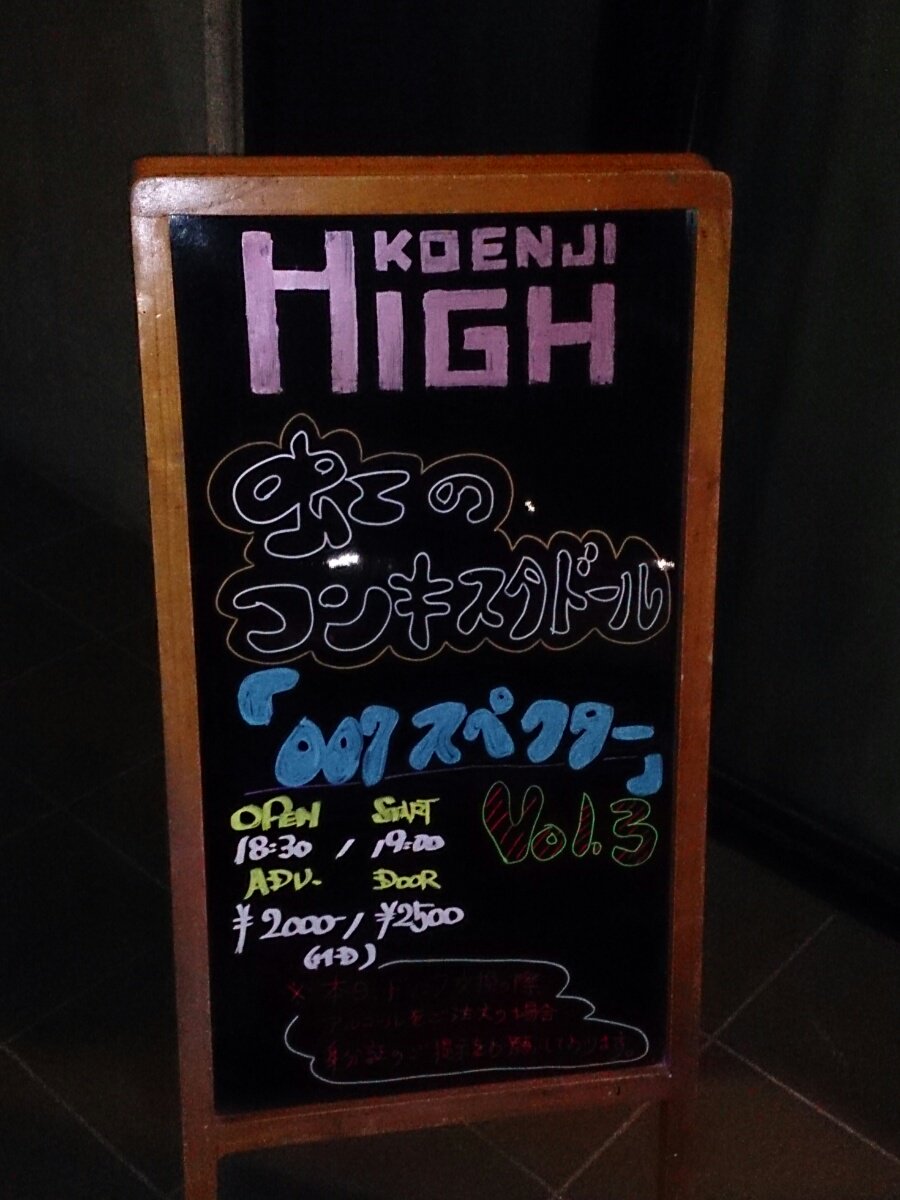 KOENJI
HIGH
虹の
コンキスタドール
『007スペクター』
Vol.3
OPEN START
18:30 / 19:00
ADV. DOOR
¥2000 / ¥2500
(+1D)
※本日ドリンク交換の際
アルコールをご注文の場合
身分証のご提示をお願いしております。